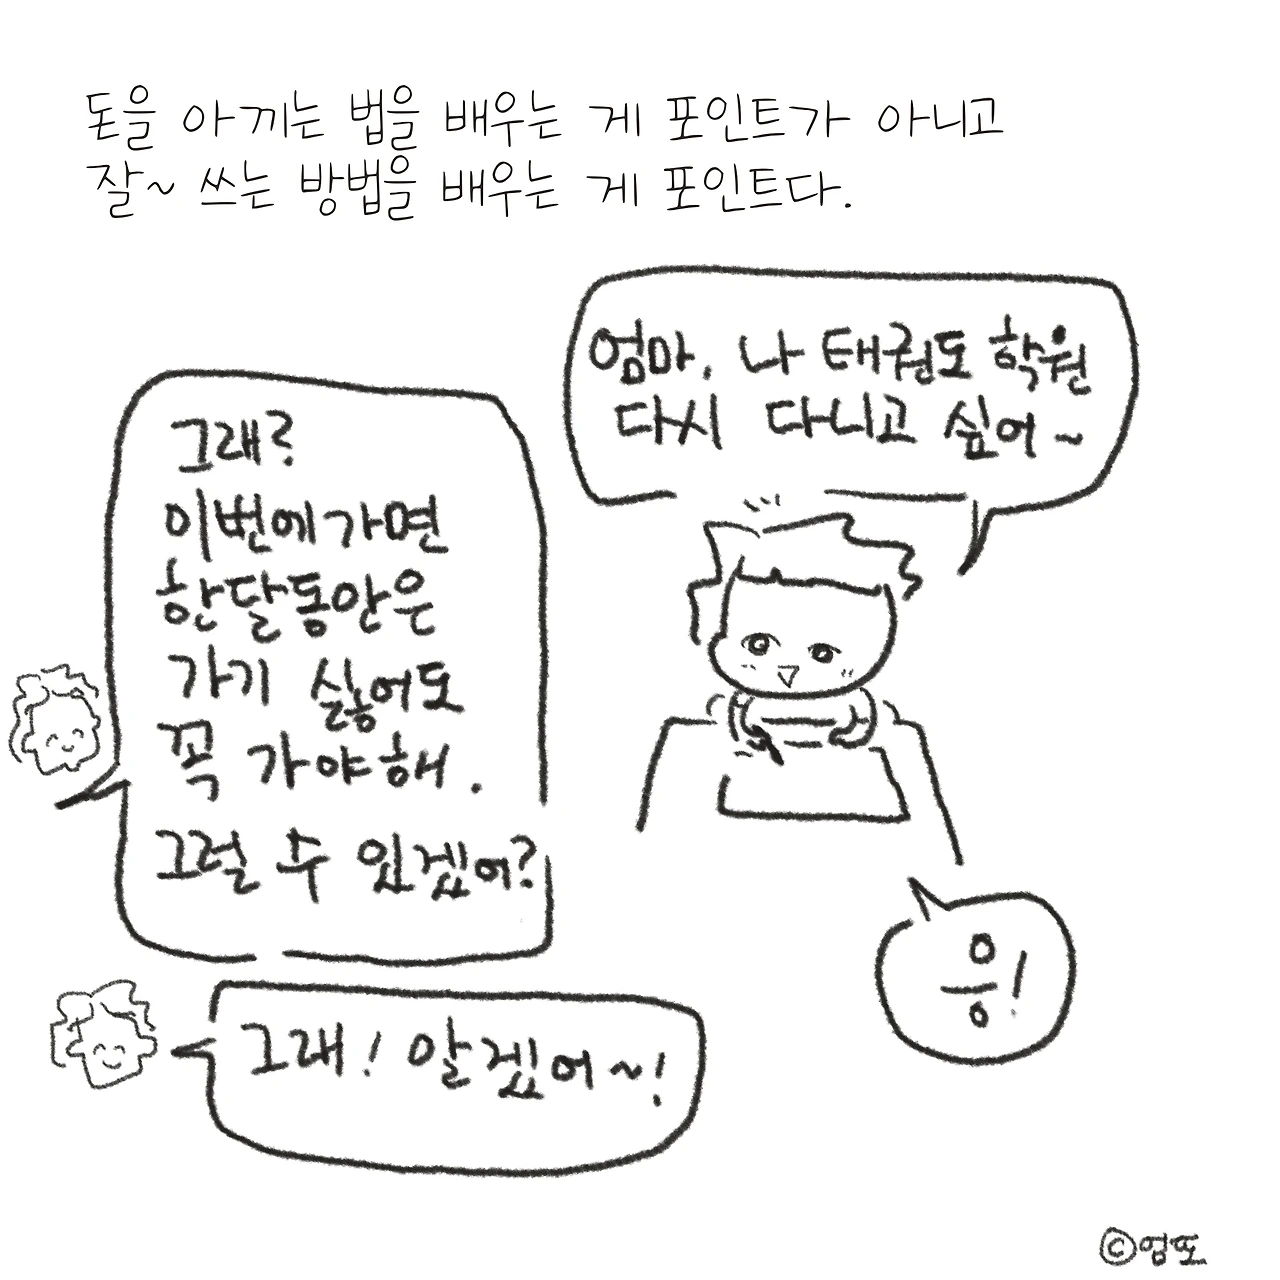 돈을 아끼는 법을 배우는 게 포인트가 아니고
잘~ 쓰는 방법을 배우는 게 포인트다.
엄마, 나 태권도 학원
다시 다니고 싶어~
그래?
이번에가면
한달동안은
가기 싫어도
꼭 가야해.
그럴 수 있겠어?
응!
그래! 알겠어~!
©엄또